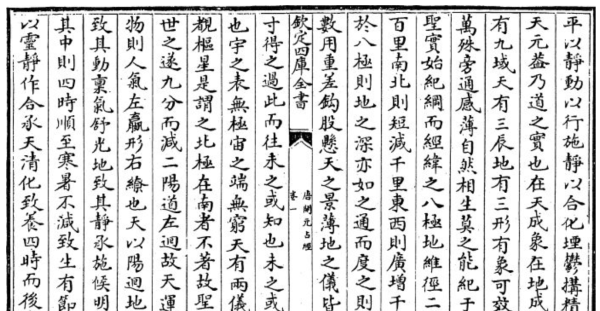 平以靜動以行施靜以合化堙鬱構精
天元蓋乃道之實也在天成象在地成
有九域天有三辰地有三形有象可效
萬殊旁通感薄自然相生莫之能紀于
聖實始紀綱而經緯之八極地維徑二
百里南北則短減千里東西則廣增千
於八極則地之深亦如之通而度之則
數用重差鈎股懸天之景薄地之儀皆
欽定四庫全書
唐開元占經
卷一
寸得之過此而往未之或知也未之或
也宇之表無極宙之端無窮天有兩儀
覩樞星是謂之北極在南者不著故聖
世之遂九分而減二陽道左迴故天運
物則人氣左羸形右繚也天以陽迴地
致其動稟氣舒光地致其靜承施候明
其中則四時順至寒暑不減致生有節
以靈靜作合承天清化致養四時而後